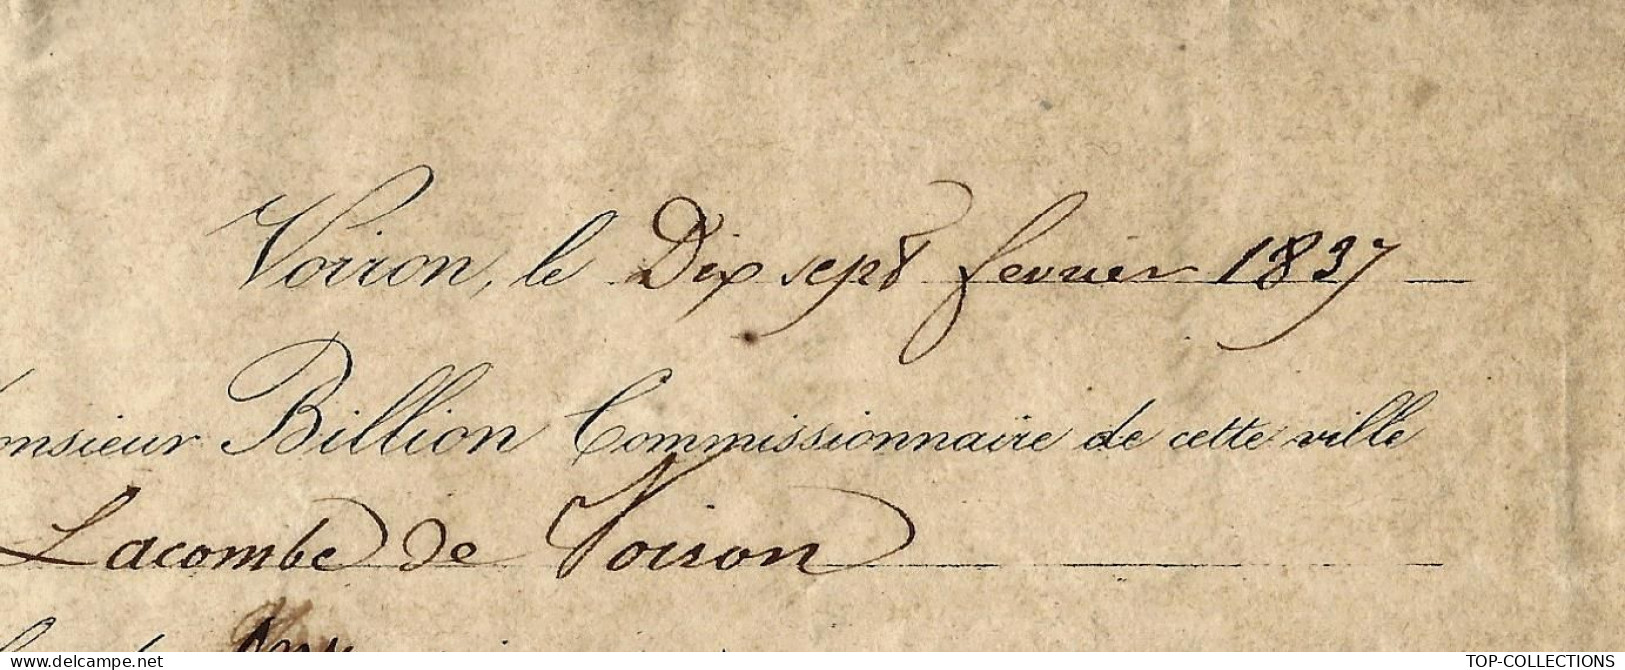 Voiron, le Dix sept fevrier 1837
onsieur Billion Commissionnaire de cette ville
Lacombe de Voiron
delcampe.net
TOP-COLLECTIONS